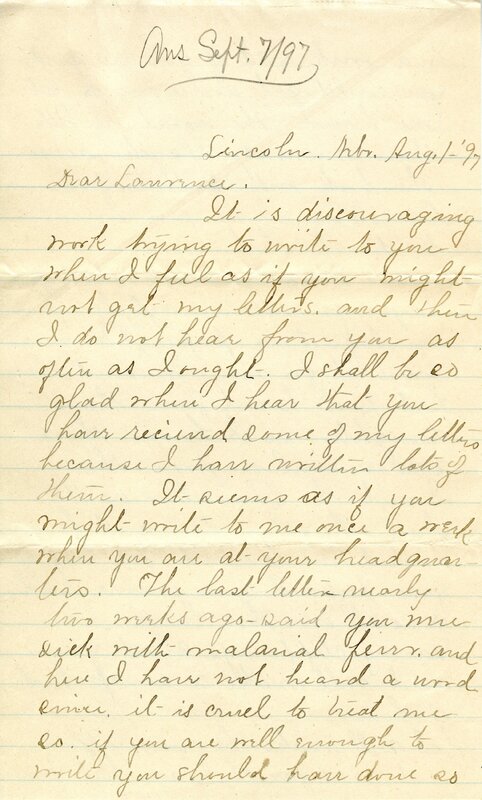 Ans Sept. 7/97
Lincoln. Nbr. Aug. 1-'97
Dear Lawrence.
It is discouraging
work trying to write to you
when I feel as if you might
not get my letters. and then
I do not hear from you as
often as I ought. I shall be so
glad when I hear that you
have reciend some of my letters
because I have written lots of
them. It seems as if you
might write to me once a week
when you are at your headquar-
ters. The last letter nearly
two weeks ago - said you were
sick with malarial fever. and
here I have not heard a word
since. it is cruel to treat me
so. if you are well enough to
write you should have done so